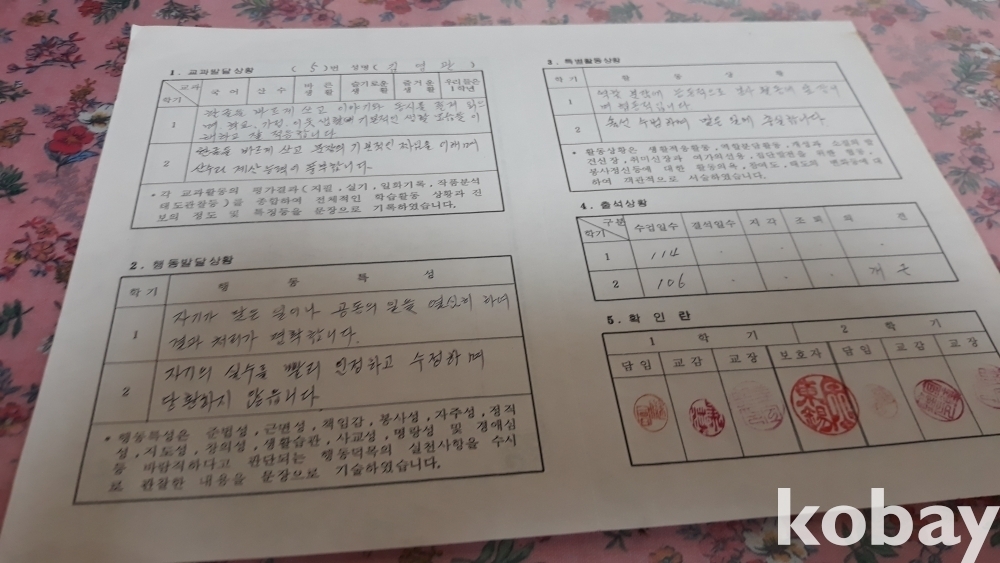 1. 교과발달상황
(5)번 성명(김영관)
교과
학기
국어
산수
바른 생활
슬기로운 생활
즐거운 생활
우리들은 1학년
1
바르게 쓰고 이야기와 동시를 즐겨
기본적인 생활 모습을 이
잘 적응합니다.
2
한글을 바르게 쓰고 문장의 기본적인
계산 능력이 풍부합니다.
• 각 교과활동의 평가결과(지필, 실기, 일화기록, 작품분석
태도관찰등)를 종합하여 전체적인 학습활동 상황과 진
보의 정도 및 특징등을 문장으로 기록하였습니다.
2. 행동발달상황
학기
행동특성
1
자기가 맡은 일이나 공동의 일을 열심히 하며
결과 처리가 명확합니다.
2
자기의 실수를 빨리 인정하고 수정하며
당황하지 않습니다.
• 행동특성은 준법성, 근면성, 책임감, 봉사성, 자주성, 정직
성, 지도성, 창의성, 생활습관, 사교성, 명랑성 및 경애심
등 바람직하다고 판단되는 행동덕목의 실천사항을 수시
로 관찰한 내용을 문장으로 기술하였습니다.
3. 특별활동상황
학기
활동상황
1
2
충실합니다.
• 활동상황은 생활적응활동, 역할분담활동, 개성과 소질의 발
견신장, 취미신장과 여가의선용, 집단발전을 위한 협동,
봉사정신등에 대한 활동의욕, 참여도, 태도의 변화등에 대
하여 객관적으로 서술하였습니다.
4. 출석상황
구분
학기
수업일수
결석일수
지각
조퇴
의견
1
114
2
106
개근
5. 확인란
1학기
2학기
담임
교감
교장
보호자
담임
교감
교장
kobay